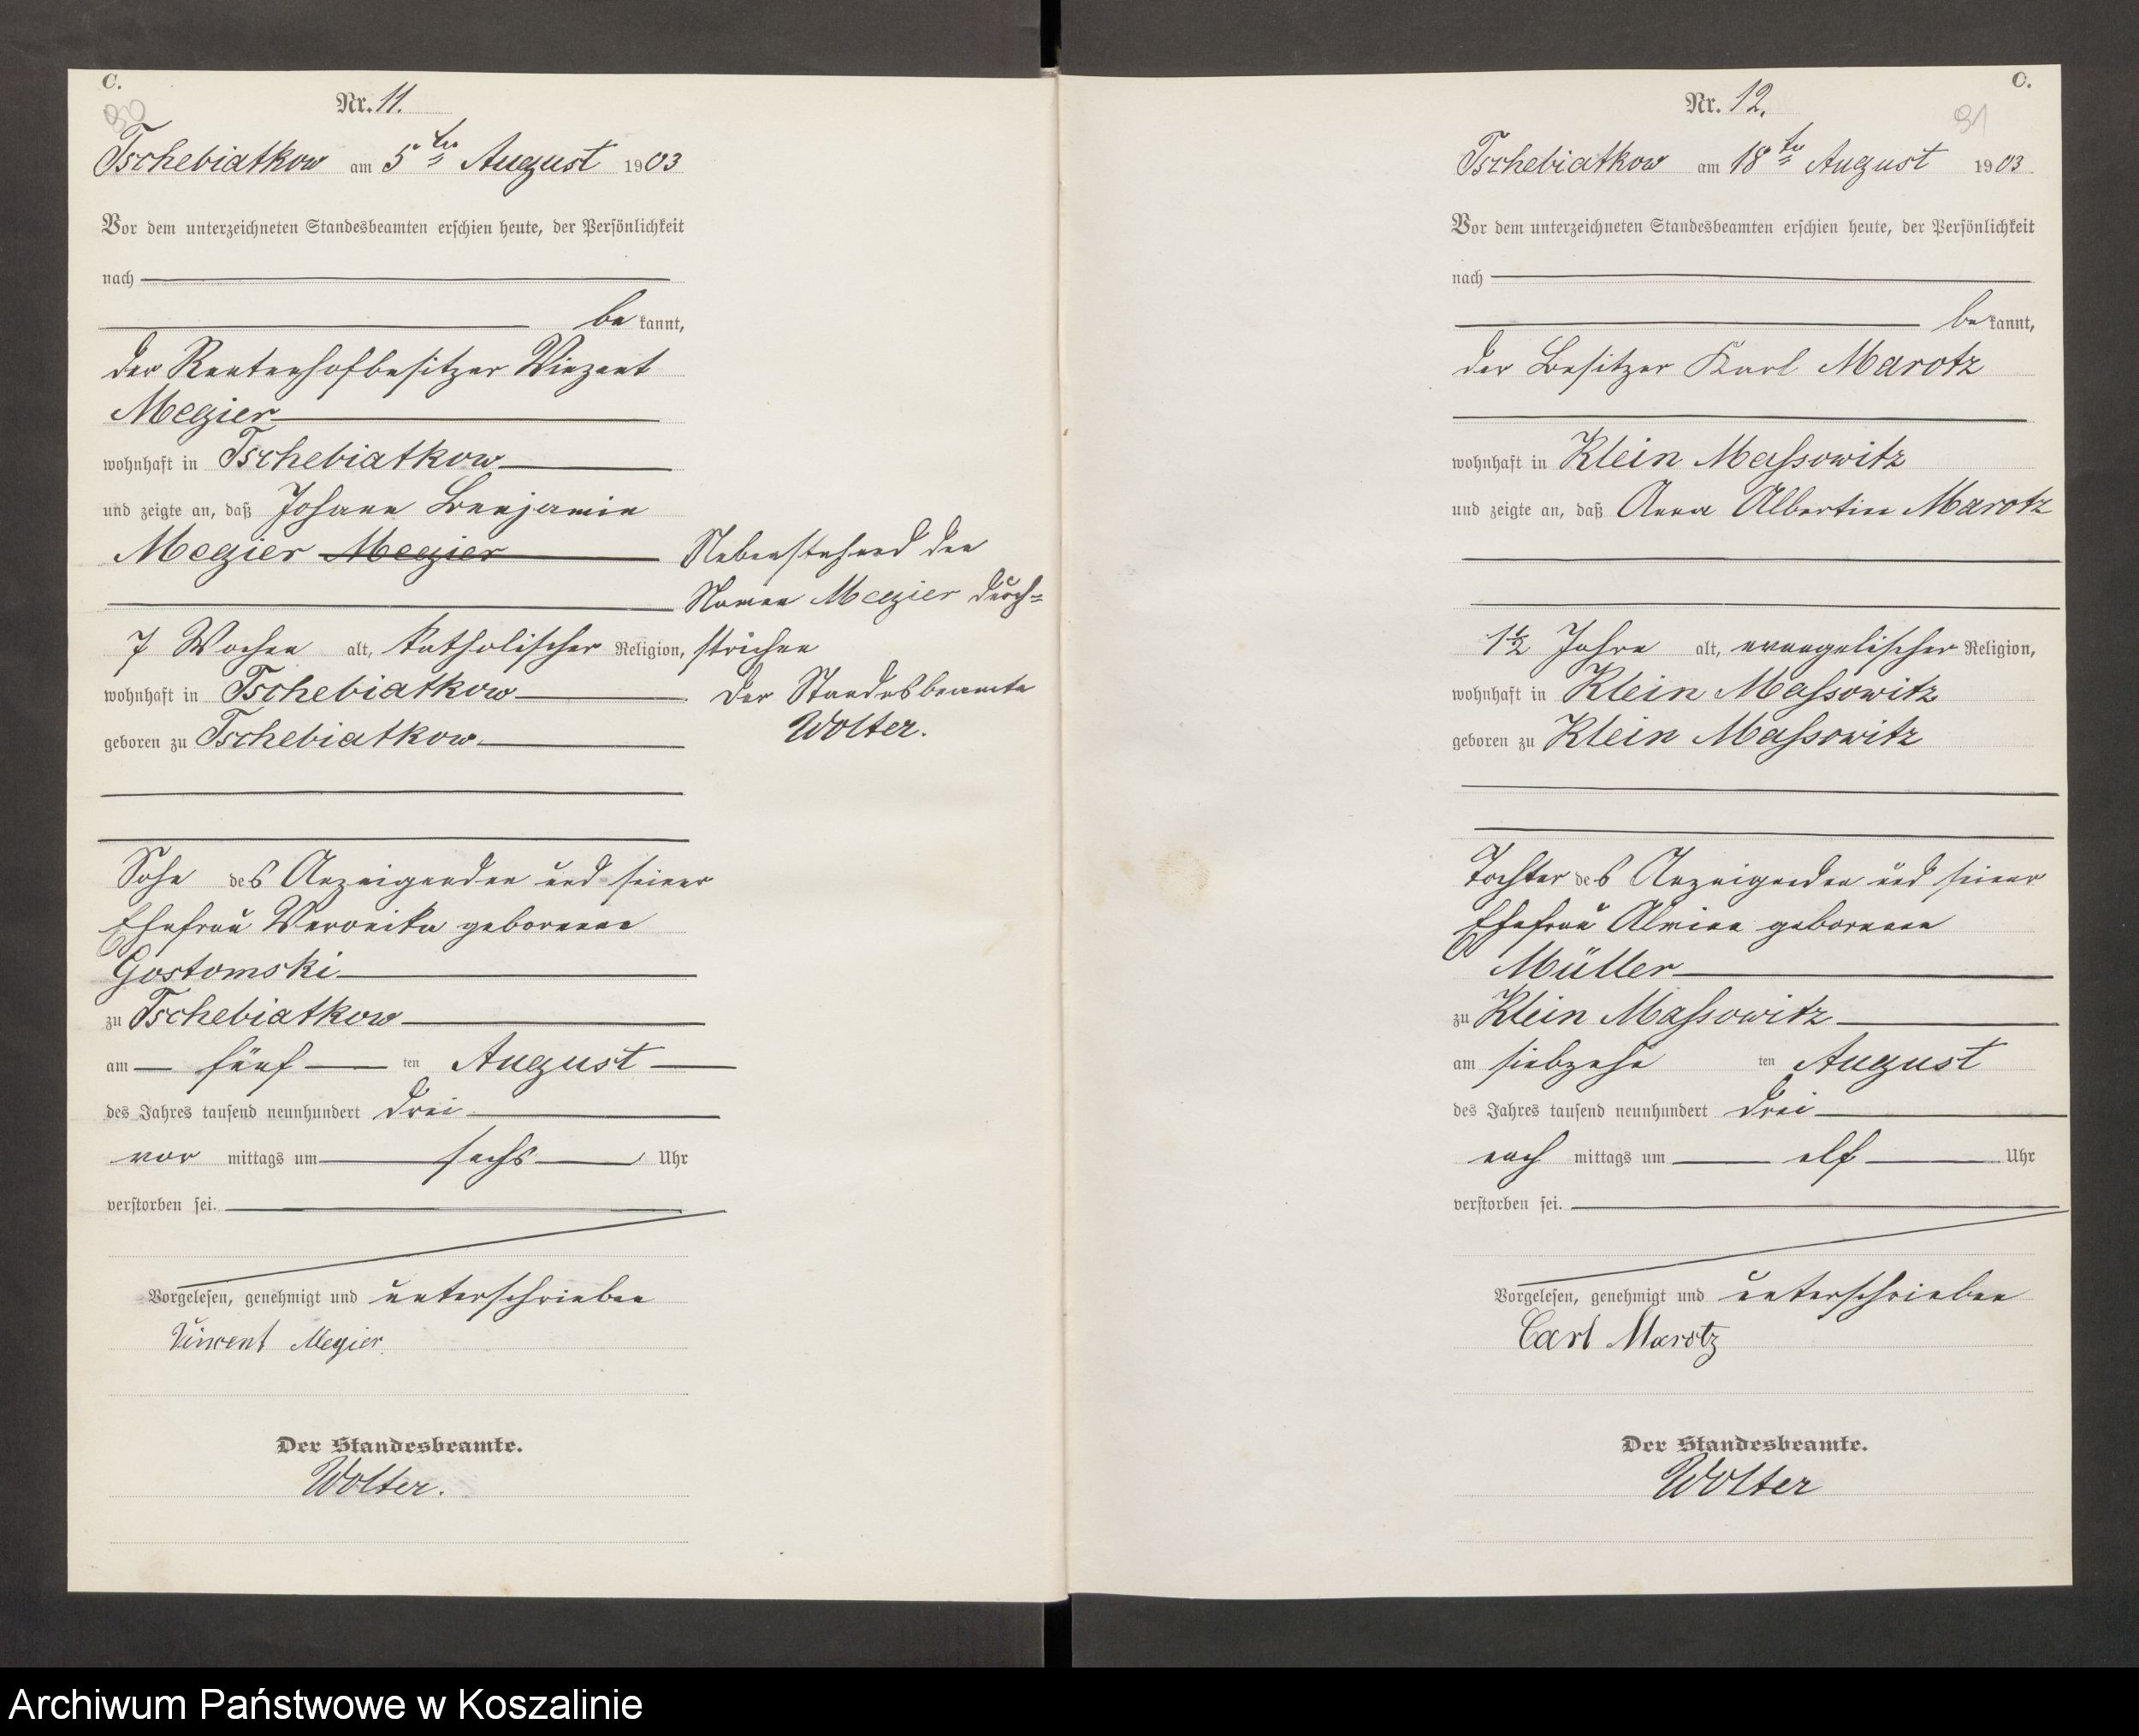 C.
90
Nr. 11.
Tschebiatkow am 5ten August 1903
Vor dem unterzeichneten Standesbeamten erschien heute, der Persönlichkeit
nach
be kannt,
der Rentenhofbesitzer Vinzent
Megier
wohnhaft in Tschebiatkow
und zeigte an, daß Johann Benjamin
Megier Megier
7 Wochen alt, katholischer Religion,
wohnhaft in Tschebiatkow
geboren zu Tschebiatkow
Nebenstehend den
Namen Megier durch=
strichen
Der Standesbeamte
Wolter.
Sohn des Anzeigenden und seiner
Ehefrau Veronika geborenen
Gostomski
zu Tschebiatkow
am fünf ten August
des Jahres tausend neunhundert drei
vor mittags um sechs Uhr
verstorben sei.
Vorgelesen, genehmigt und unterschrieben
Vincent Megier
Der Standesbeamte.
Wolter.
C.
91
Nr. 12.
Tschebiatkow am 18ten August 1903
Vor dem unterzeichneten Standesbeamten erschien heute, der Persönlichkeit
nach
be kannt,
der Besitzer Karl Marotz
wohnhaft in Klein Massowitz
und zeigte an, daß Anna Albertine Marotz
1½ Jahre alt, evangelischer Religion,
wohnhaft in Klein Massowitz
geboren zu Klein Massowitz
Tochter des Anzeigenden und seiner
Ehefrau Alwine geborenen
Müller
zu Klein Massowitz
am siebzehn ten August
des Jahres tausend neunhundert drei
nach mittags um elf Uhr
verstorben sei.
Vorgelesen, genehmigt und unterschrieben
Carl Marotz
Der Standesbeamte.
Wolter
Archiwum Państwowe w Koszalinie